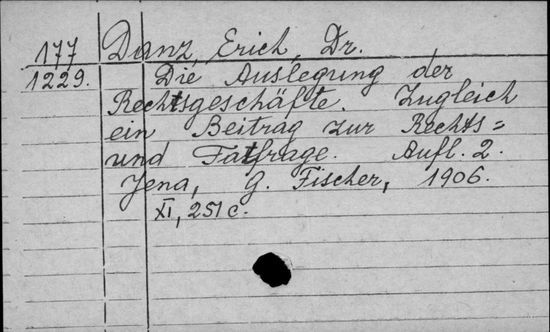 177 Danz, Erich, Dr.
1229. Die Auslegung der
Rechtsgeschäfte. Zugleich
ein Beitrag zur Rechts=
und Tatfrage. Aufl. 2.
Jena, G. Fischer, 1906.
XI, 251 c.